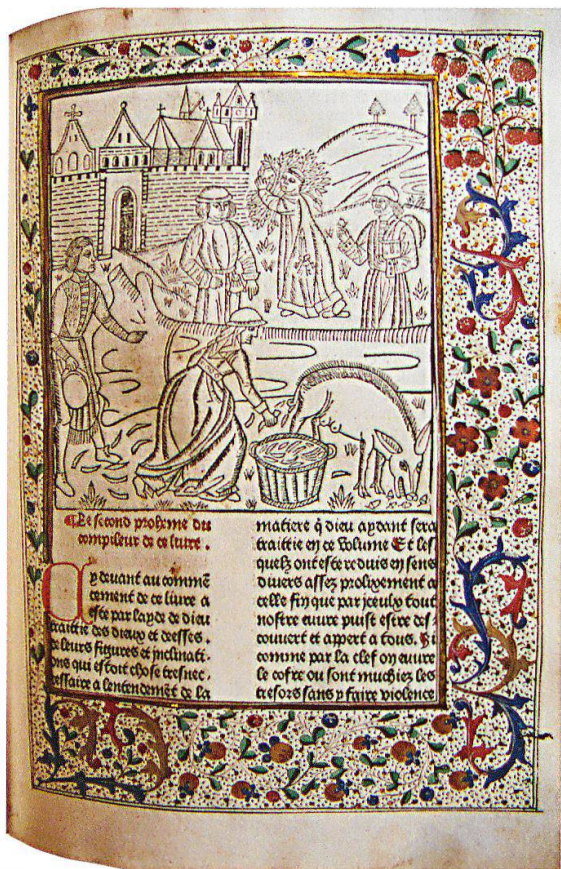 Le second prologme du
compileur de ce liure .
Cy deuant au commē
cement de ce liure a
este par layde de dieu
traittie des dieux et deesses .
de leurs figures et inclinati-
ons qui estoit chose tresnec
cessaire a lentendemēt de la
matiere q̄ dieu aydant sera
traittie en ce volume Et les
quelz ont este reduis en sens
diuers assez prolixement a
celle fin que par jceulx tout
nostre euure puist estre des
couuert et appert a tous . Si
comme par la clef on euure
le cofre ou sont muchiez les
tresors sans y faire violence